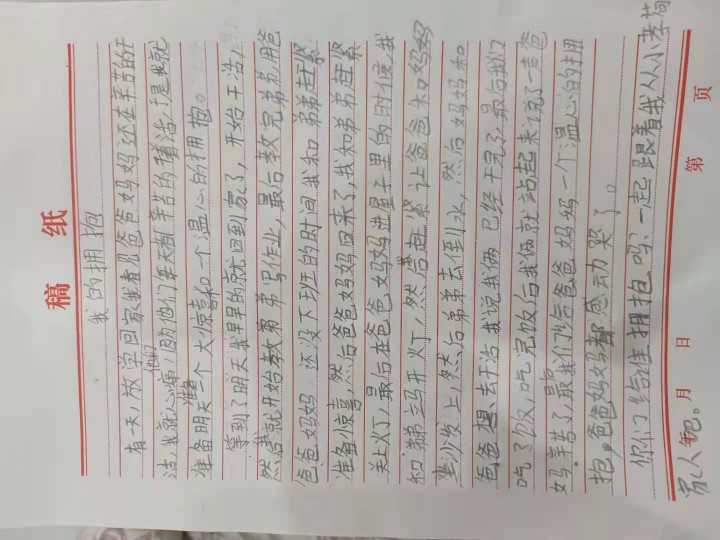 稿 纸
我的拥抱
有一天,放学回家我看见爸爸妈妈还在辛苦的干
活,我就心痛,因为他们每天都辛苦的着活于是我就
准备明天一个大惊喜和一个温心的拥抱。
等到了明天我早早的就回到家了,开始干活,
然后就开始教弟弟写作业,最后教完弟弟用爸
爸妈妈 还没下班的时间我和弟弟赶紧
准备惊喜,然后爸爸妈妈回来了,我和弟弟赶紧
关上火丁,最后在爸爸妈妈进屋子里的时侯我
和弟弟立马开火丁,然后赶紧让爸爸和妈妈
坐沙发上,然后弟弟去倒水,然后妈妈和
爸爸想去干活我说我俩已经干完了,最后我们
吃了饭,吃完饭后我俩就站起来说了一声爸
妈辛苦了,最后我们给爸爸妈妈一个温心的拥
抱,爸爸妈妈都感动哭了。
你们给谁拥抱吗?一起跟着我从小拥
家人吧。 年 月 日 第 页